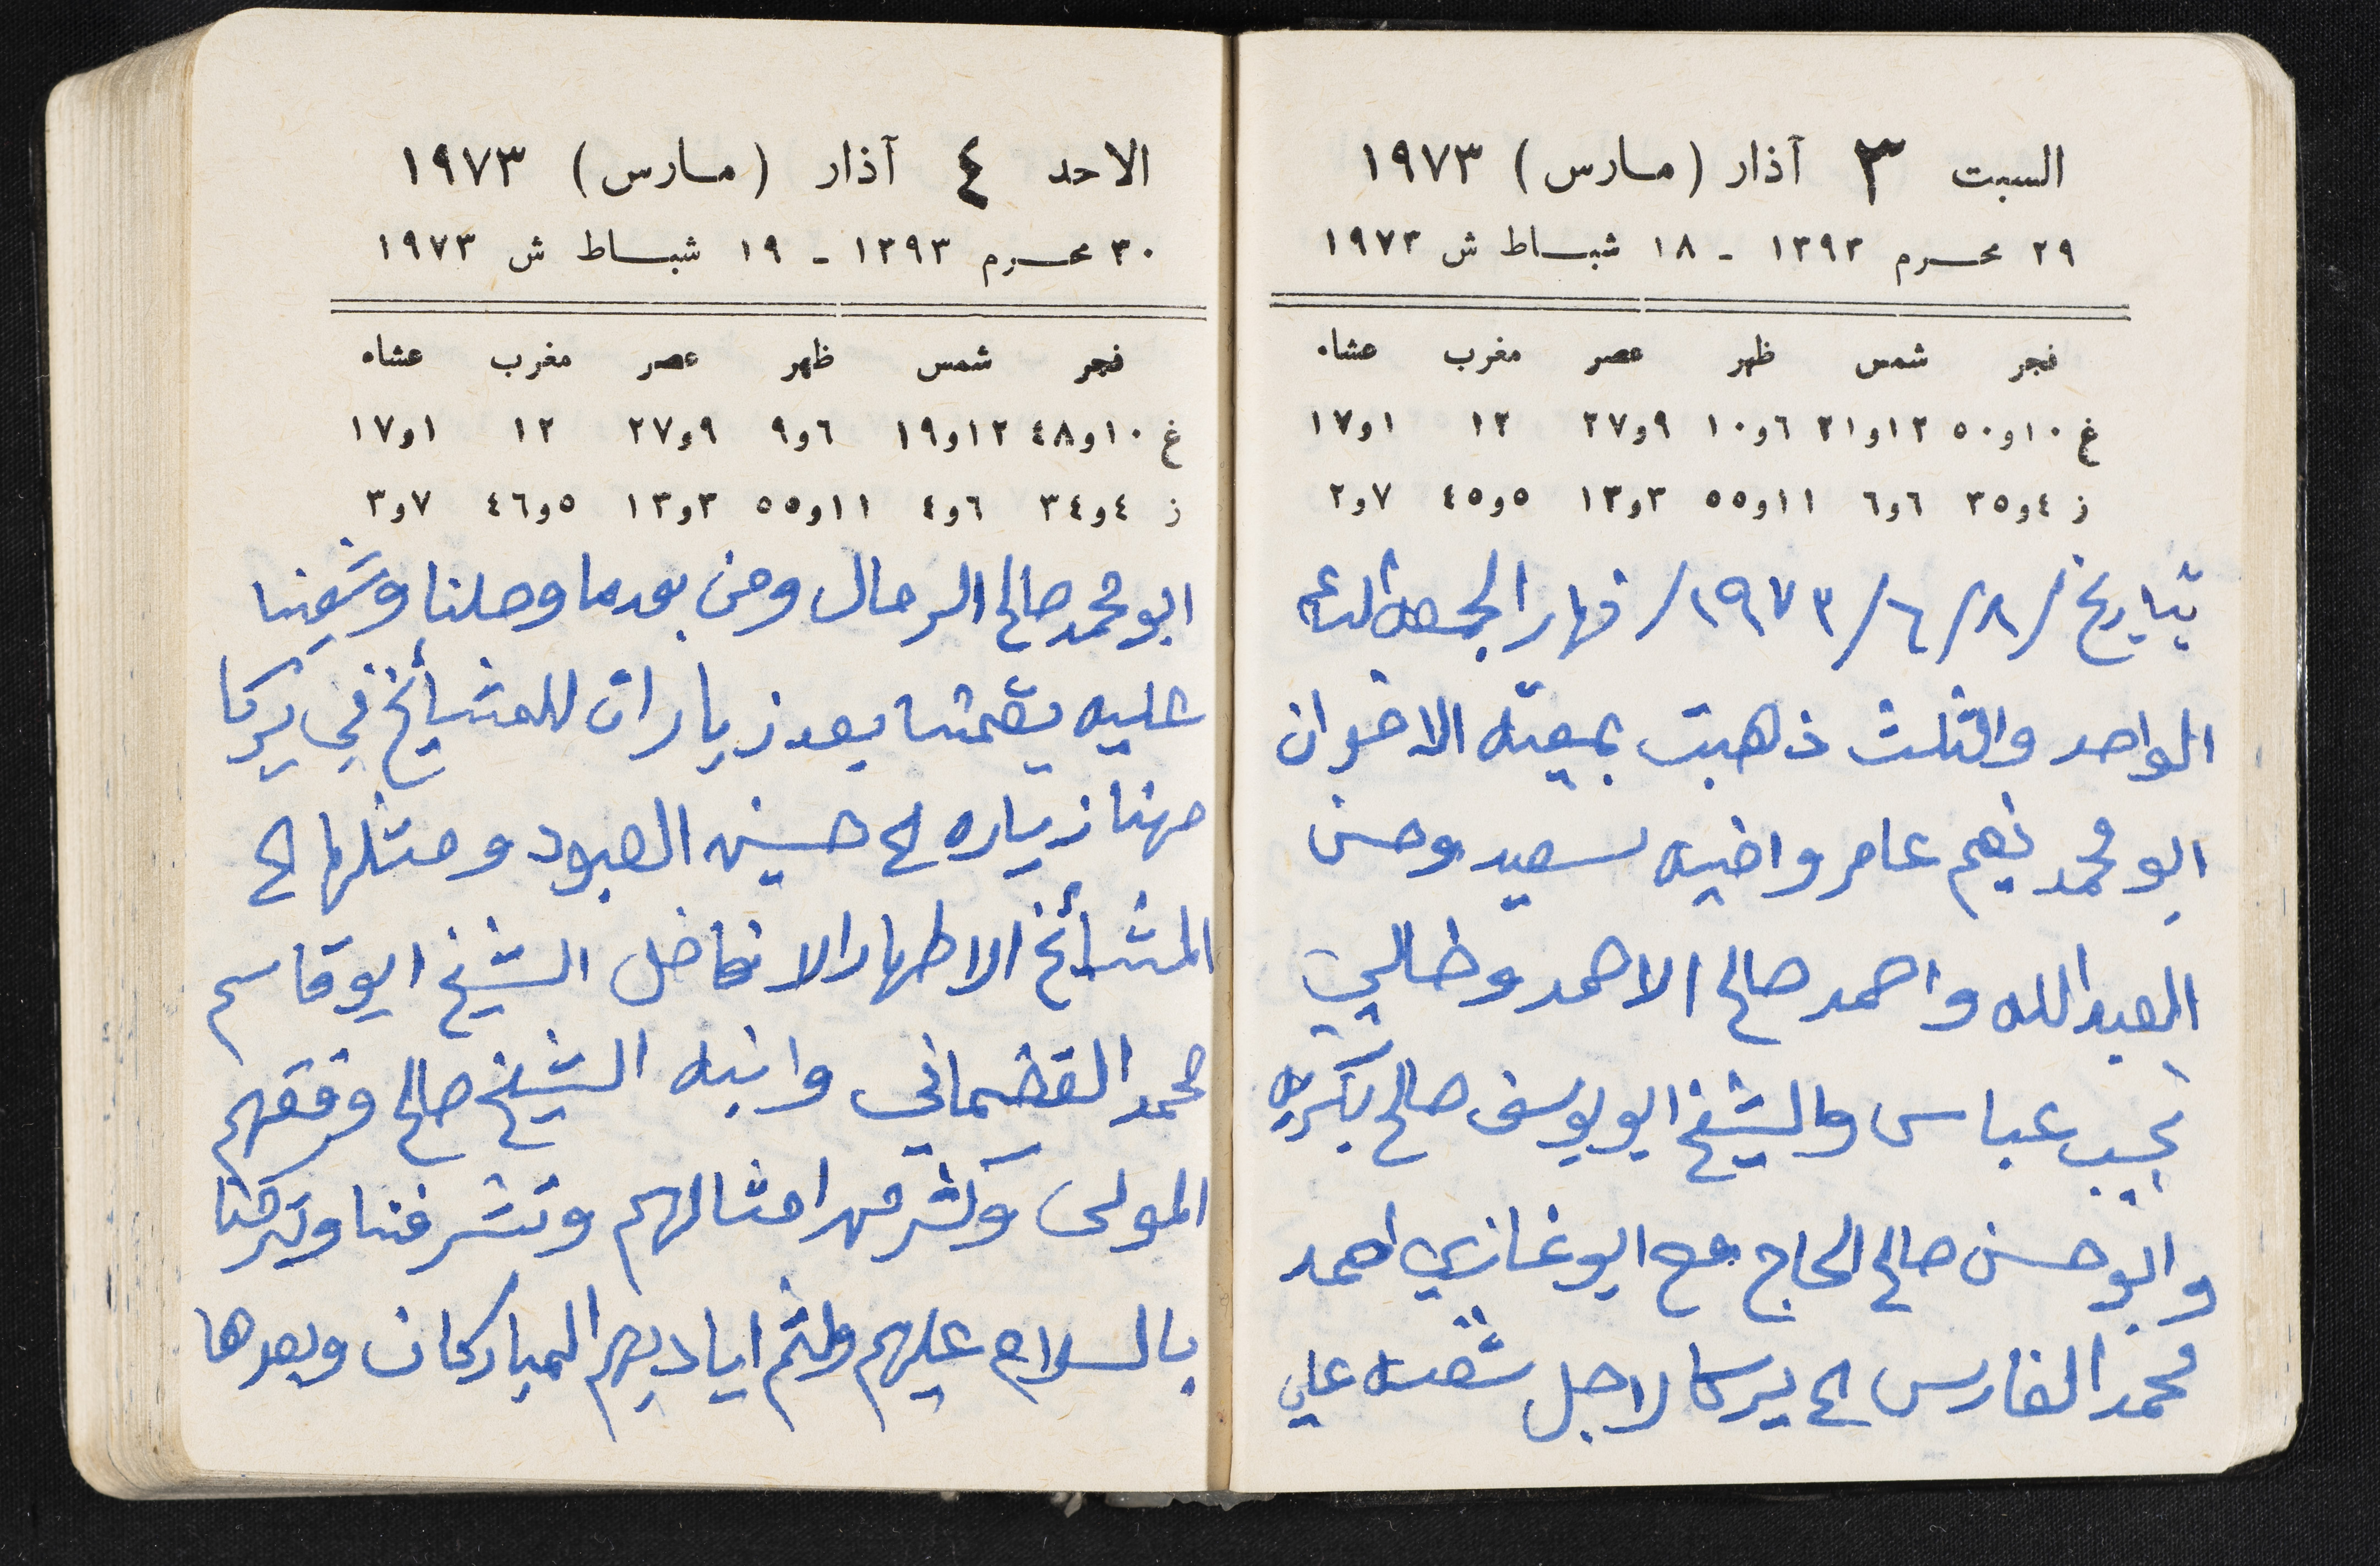 السبت ٣ آذار (مارس) ١٩٧٣
٢٩ محرم ١٣٩٣ - ١٨ شباط ش ١٩٧٣
فجر شمس ظهر عصر مغرب عشاه
غ ١٠و٥٠ ١٢و٢١ ٦و١٠ ٩و٢٧ ١٢ ١و١٧
ز ٤و٣٥ ٦و٦ ١١و٥٥ ٣و١٣ ٥و٤٥ ٧و٢
بتاريخ /٨/٦/١٩٧٣/ نهار الجمعة الساعه
الواحد والثلث ذهبت بمعيته الاخوان
ابو محمد نعيم عامر واخيه سعيد وحسن
العبدالله واحمد صالح الاحمد وخالي
نجيب عباس والشيخ ابو يوسف صالح بكريه
وابو حسن صالح الحاج مع ابو غازي احمد
محمد الفارس الى يركا لاجل علي
الاحد ٤ آذار (مارس) ١٩٧٣
٣٠ محرم ١٣٩٣ - ١٩ شباط ش ١٩٧٣
فجر شمس ظهر عصر مغرب عشاه
غ ١٠و٤٨ ١٢و١٩ ٦و٩ ٩و٢٧ ١٢ ١و١٧
ز ٤و٣٤ ٦و٤ ١١و٥٥ ٣و١٣ ٥و٤٦ ٧و٣
ابو محمد صالح الرحال ومن بعدما وصلنا وشقينا
عليه يقمنا بعد زيارات للمشأيخ في يركا
مهنا زياره الى حسين العبود ومثلها الى
المشأيخ الاطهار الافاضل الشيخ ابو قاسم
محمد القضماني وابنه الشيخ صالح وفقهم
المولى وكثر من امثالهم وتشرفنا وتبركنا
بالسلام عليهم ولثم اياديهم المباركات وبعدها